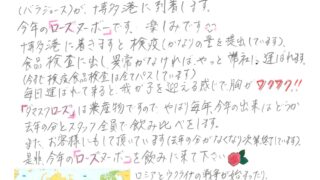 (バラジュース)が 博多港に到着します。
今年のローズヌーボーです。楽しみです
博多港に着きますと検疫(かなりの量を提出しています)。
食品検査に出し異常がなければ、やっと弊社に運ばれます。
(今まで検疫食品検査は全てパスしています)
毎日運ばれて来ると我が子を迎える感じで胸がワクワク!!
「ダマスクローズ」は農産物ですので、やはり毎年、今年の出来はどうか
去年の分とスタッフ全員で飲み比べをします。
また、お客様にもして頂いています(去年の分がなくなり次第終了しています)。
是非、今年のローズヌーボーを飲みに来て下さい
ロシアとウクライナの戦争が始まったり、